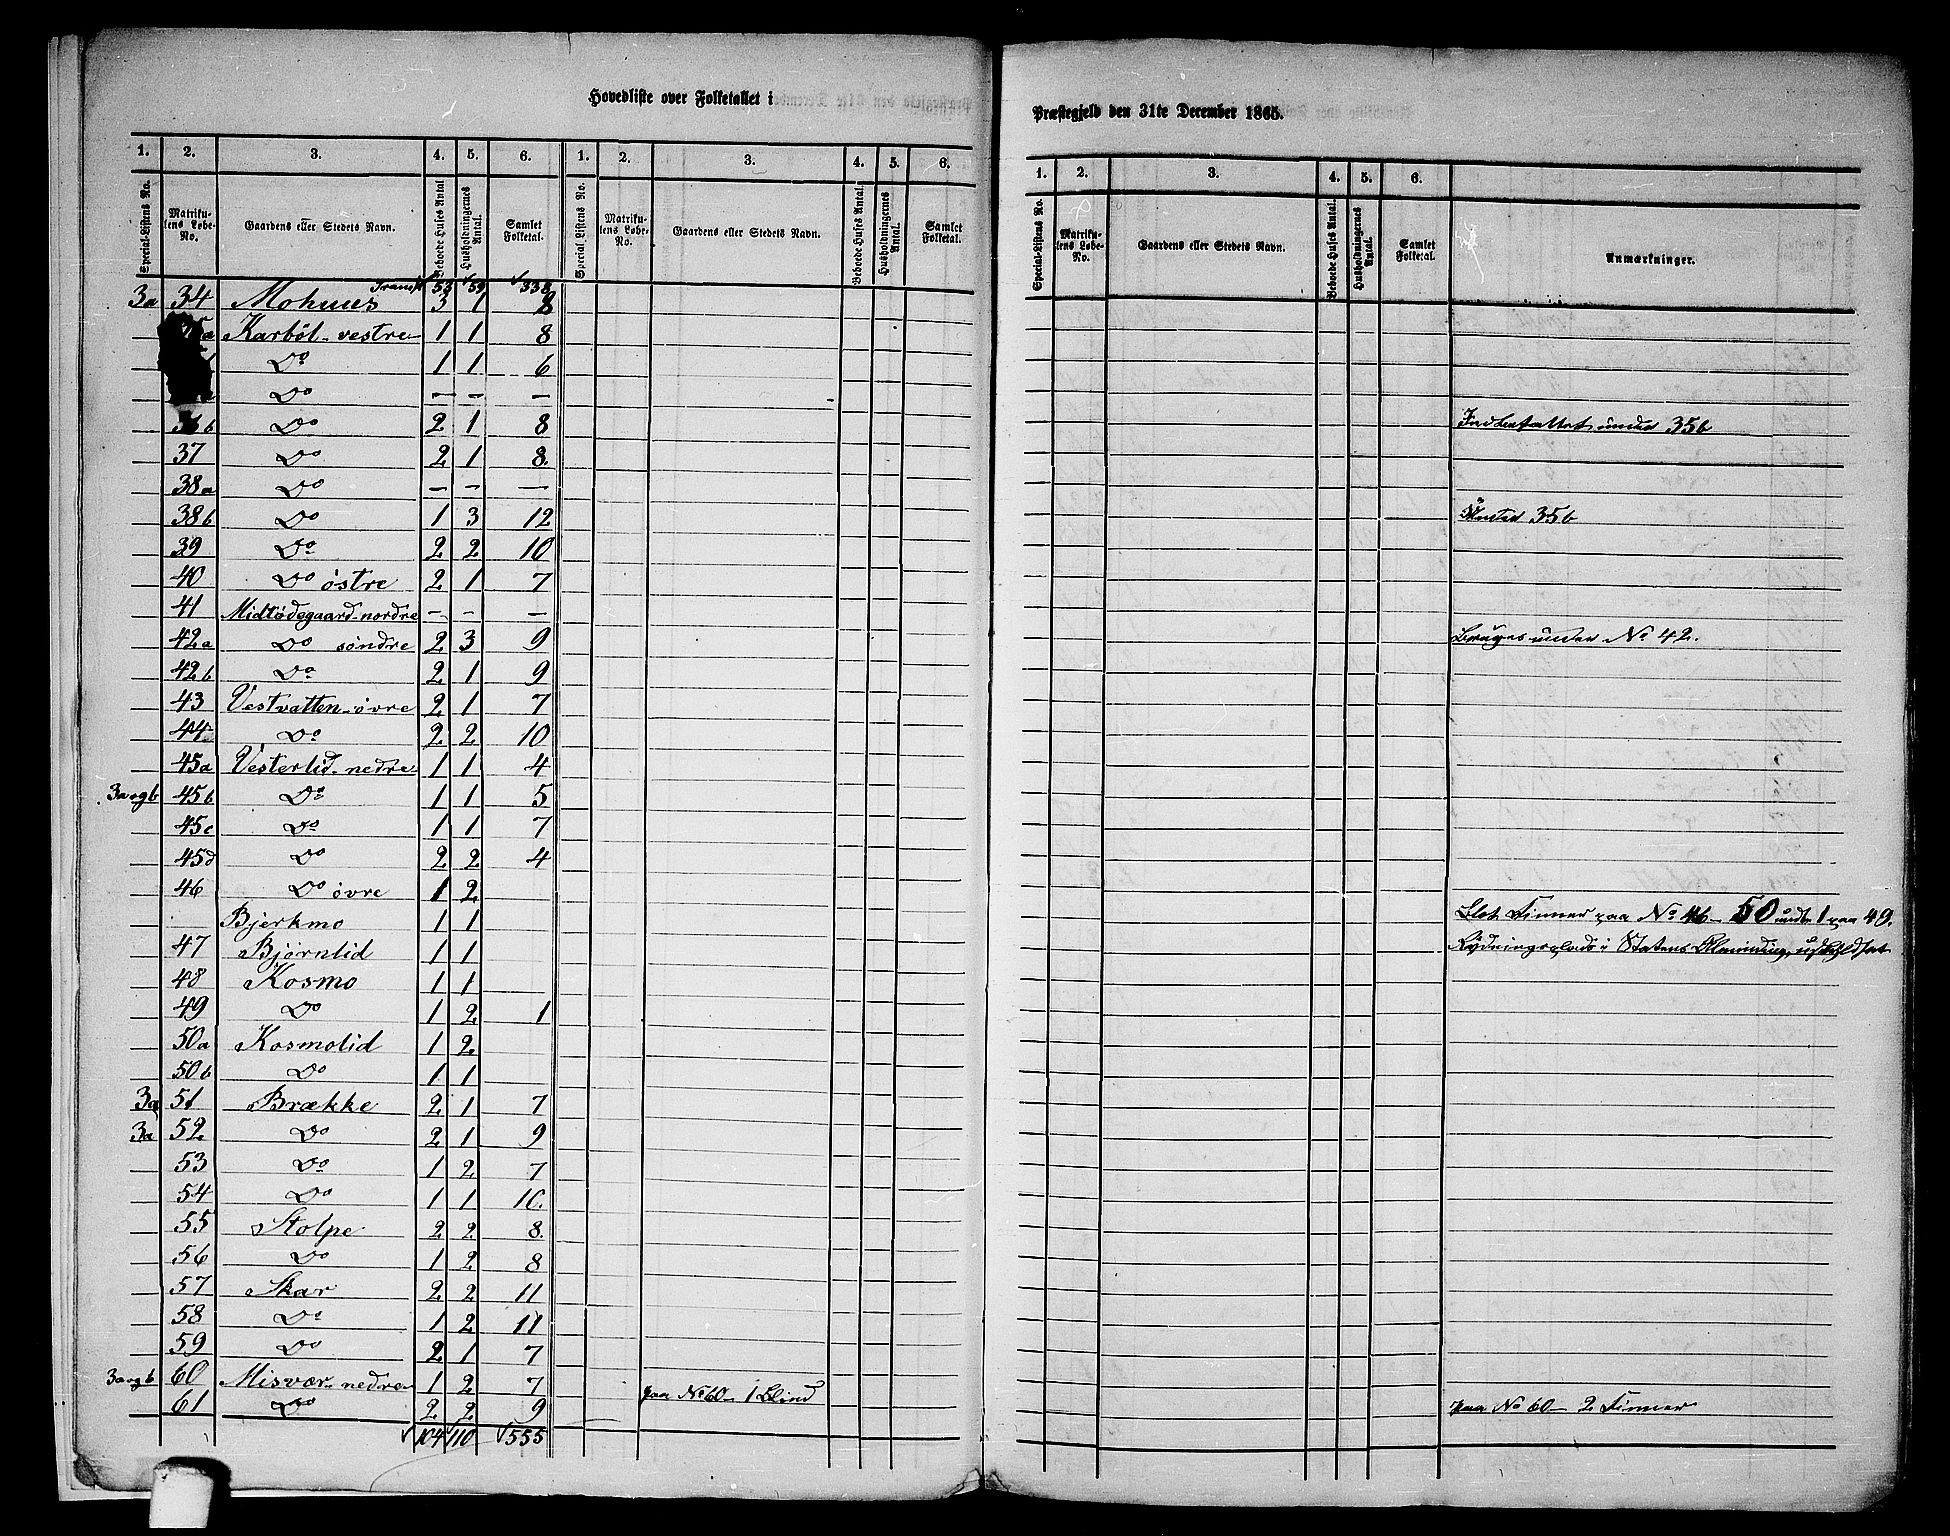 Hovedliste over Folketallet i
Præstegjeld den 31te December 1865.
1. 2. 3. 4. 5. 6. 1. 2. 3. 4. 5. 6.
Special-Listens No. Matrikulens Løbe-No. Gaardens eller Stedets Navn. Beboede Huses Antal Husholdningernes Antal. Samlet Folketal. Special Listens No. Matrikulens Løbe-No. Gaardens eller Stedets Navn. Beboede Huses Antal. Husholdningernes Antal. Samlet Folketal.
1. 2. 3. 4. 5. 6.
Special-Listens No. Matrikulens Løbe-No. Gaardens eller Stedets Navn. Beboede Huses Antal. Husholdningernes Antal. Samlet Folketal. Anmærkninger.
Transp 53 59 338
3a 34 Mohuus 3 1 8
a Karbøl-vestre 1 1 8
Do 1 1 6
Do — — —
36b Do 2 1 8 Indbefattet under 35b
37 Do 2 1 8.
38a Do — — —
38b Do 1 3 12 Under 35b
39 Do 2 2 10
40 Do østre 2 1 7
41 Midtødegaard-nordre — — —
42a Do søndre 2 3 9 Bruges under No 42.
42b Do 2 1 9
43 Vestvatten-øvre 2 1 7
44 Do 2 2 10
45a Vesterlid-nedre 1 1 4
3a og b 45b Do 1 1 5
45c Do 1 1 7
45d Do 2 2 4
46 Do øvre 1 2
Bjerkmo 1 1 Blot Finner paa No 46-50 undt 1 paa 49.
47 Bjørnlid 1 1 Rydningsplads i Statens Alminding,
48 Kosmo 1 1
49 Do 1 2 1
50a Kosmolid 1 2
50b Do 1 1
3a 51 Brække 2 1 7
3a 52 Do 2 1 9
53 Do 1 2 7
54 Do 1 1 10.
55 Stolpe 2 2 8.
56 Do 1 2 8
57 Skar 2 2 11
58 Do 1 2 11
59 Do 2 1 7
3a og b 60 Misvær-nedre 1 2 7 paa No 60- 1 Blind
61 Do 2 2 9 paa No 60- 2 Finner
104 110 555